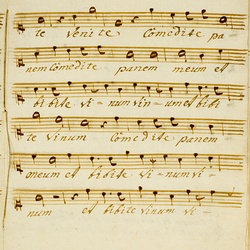 te venite Comedite pa
nem Comedite panem meum et
bibite vi- num vin- um et bibi
te vinum Comedite panem
meum et bibite vi- num vi-
num et bibite vinum vi-